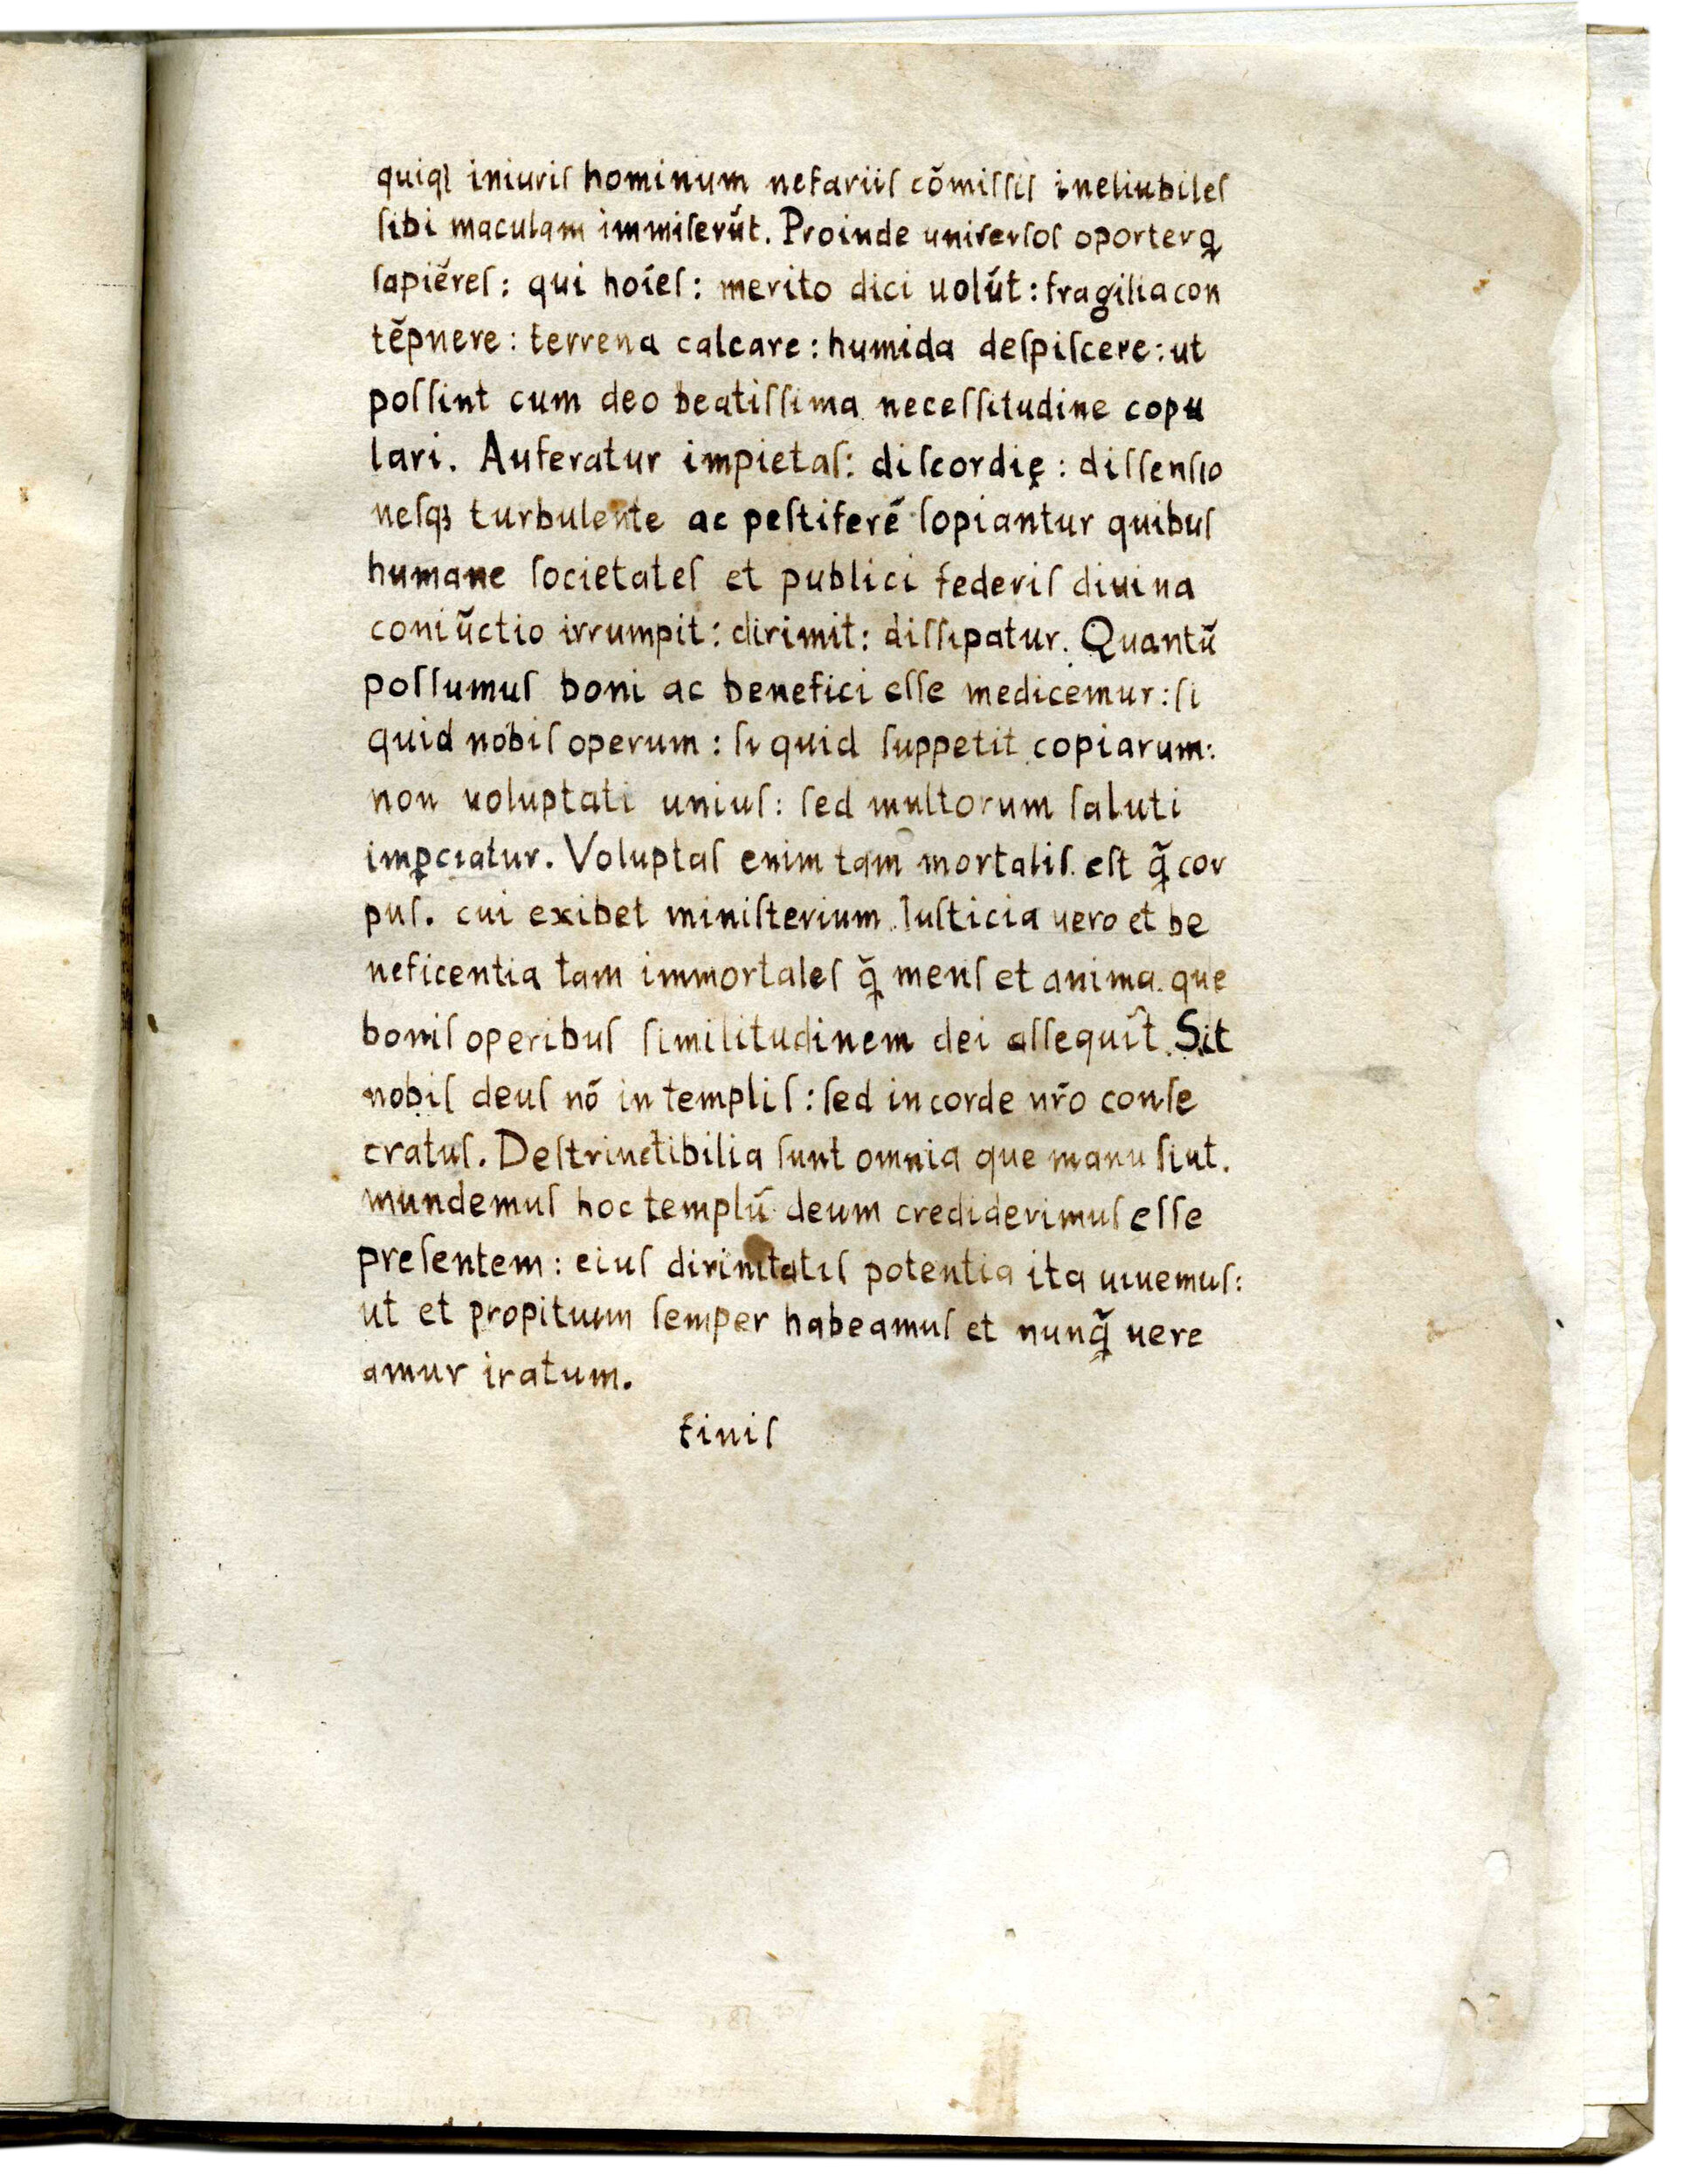 quiqꝫ iniuriſ hominum nefariiſ cōmiſſiſ ineliubileſ
ſibi maculam immiſerūt. Proinde univerſoſ oporterꝗ
ſapiēreſ: qui hoīeſ: merito dici uolūt: fragilia con
tēpnere: terrena calcare: humida deſpiſcere: ut
poſſint cum deo beatiſſima neceſſitudine copu
lari. Auferatur impietaſ: diſcordię: diſſenſio
neſqꝫ turbulente ac peſtiferē ſopiantur quibuſ
humane ſocietateſ et publici federiſ diuina
coniūctio irrumpit: dirimit: diſſipatur. Quantū
poſſumuſ boni ac benefici eſſe medicemur: ſi
quid nobiſ operum: ſi quid ſuppetit copiarum:
non uoluptati uniuſ: ſed multorum ſaluti
imꝑciatur. Voluptaſ enim tam mortaliſ. eſt ꝗ̄ cor
puſ. cui exibet miniſterium. Iuſticia uero et be
neficentia tam immortaleſ ꝗ̄ menſ et anima. que
boniſ operibuſ ſimilitudinem dei aſſequīt. Sit
nobiſ deuſ nō in templiſ: ſed in corde nr̄o conſe
cratuſ. Deſtrinctibilia ſunt omnia que manu ſiut.
mundemuſ hoc templū deum crediderimuſ eſſe
preſentem: eiuſ dirinitatiſ potentia ita uiuemuſ:
ut et propituum ſemper habeamuſ et nunꝗ̄ uere
amur iratum.
finiſ